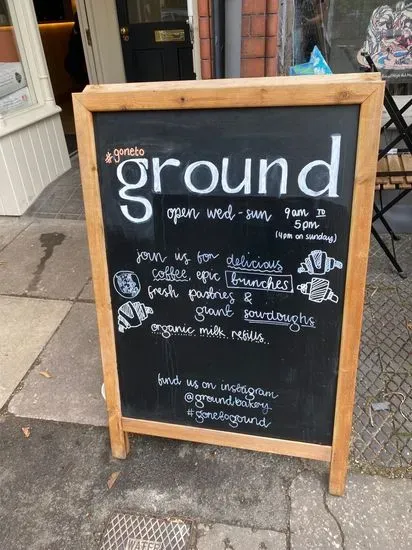 #goneto
ground
open wed-sun 9am to
5pm
(4pm on sunday)
join us for delicious
coffee, epic brunches
fresh pastries &
giant sourdoughs
organic milk refills.
find us on instagram
@groundbakery
#gonetoground
WATER